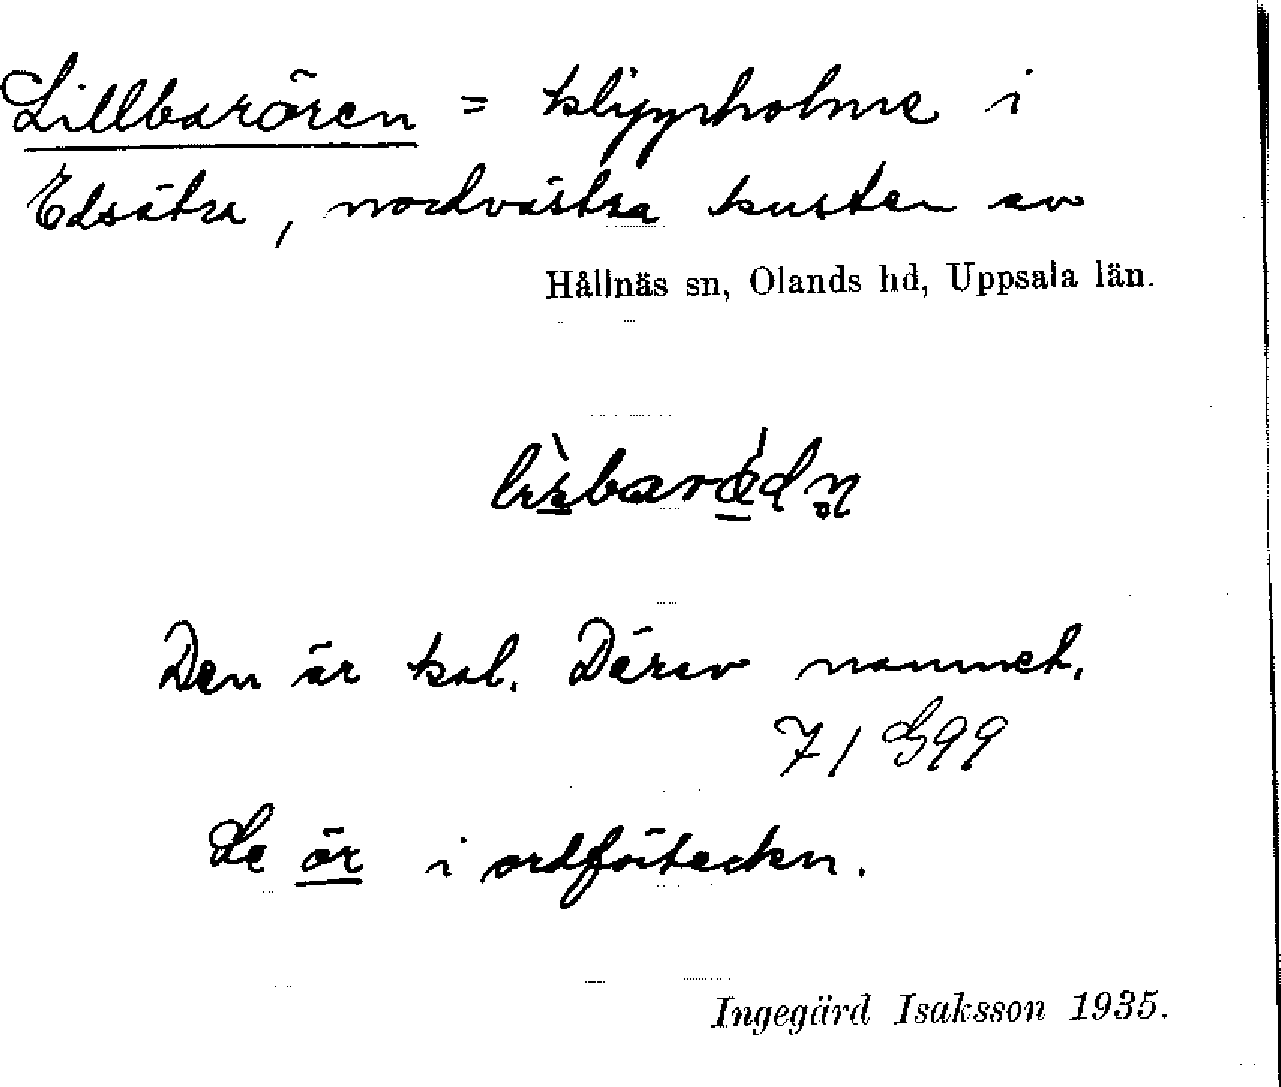 Lillbarören = klippholme i
Edsätra, nordvästra kusten av
Hållnäs sn, Olands hd, Uppsala län.
Den är kal. Därav namnet.
7/ G99
Se ör i ordförteckn.
Ingegärd Isaksson 1935.